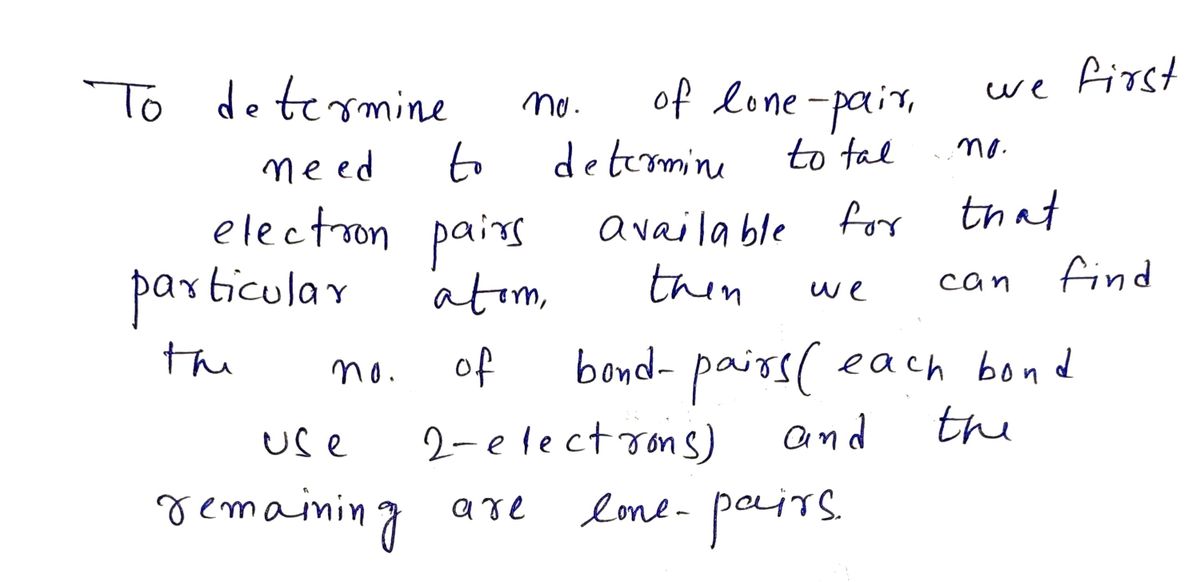 To determine no. of lone-pair, we first
need to determine total no.
electron pairs available for that
particular atom, then we can find
the no. of bond-pairs( each bond
use 2-electrons) and the
remaining are lone-pairs.